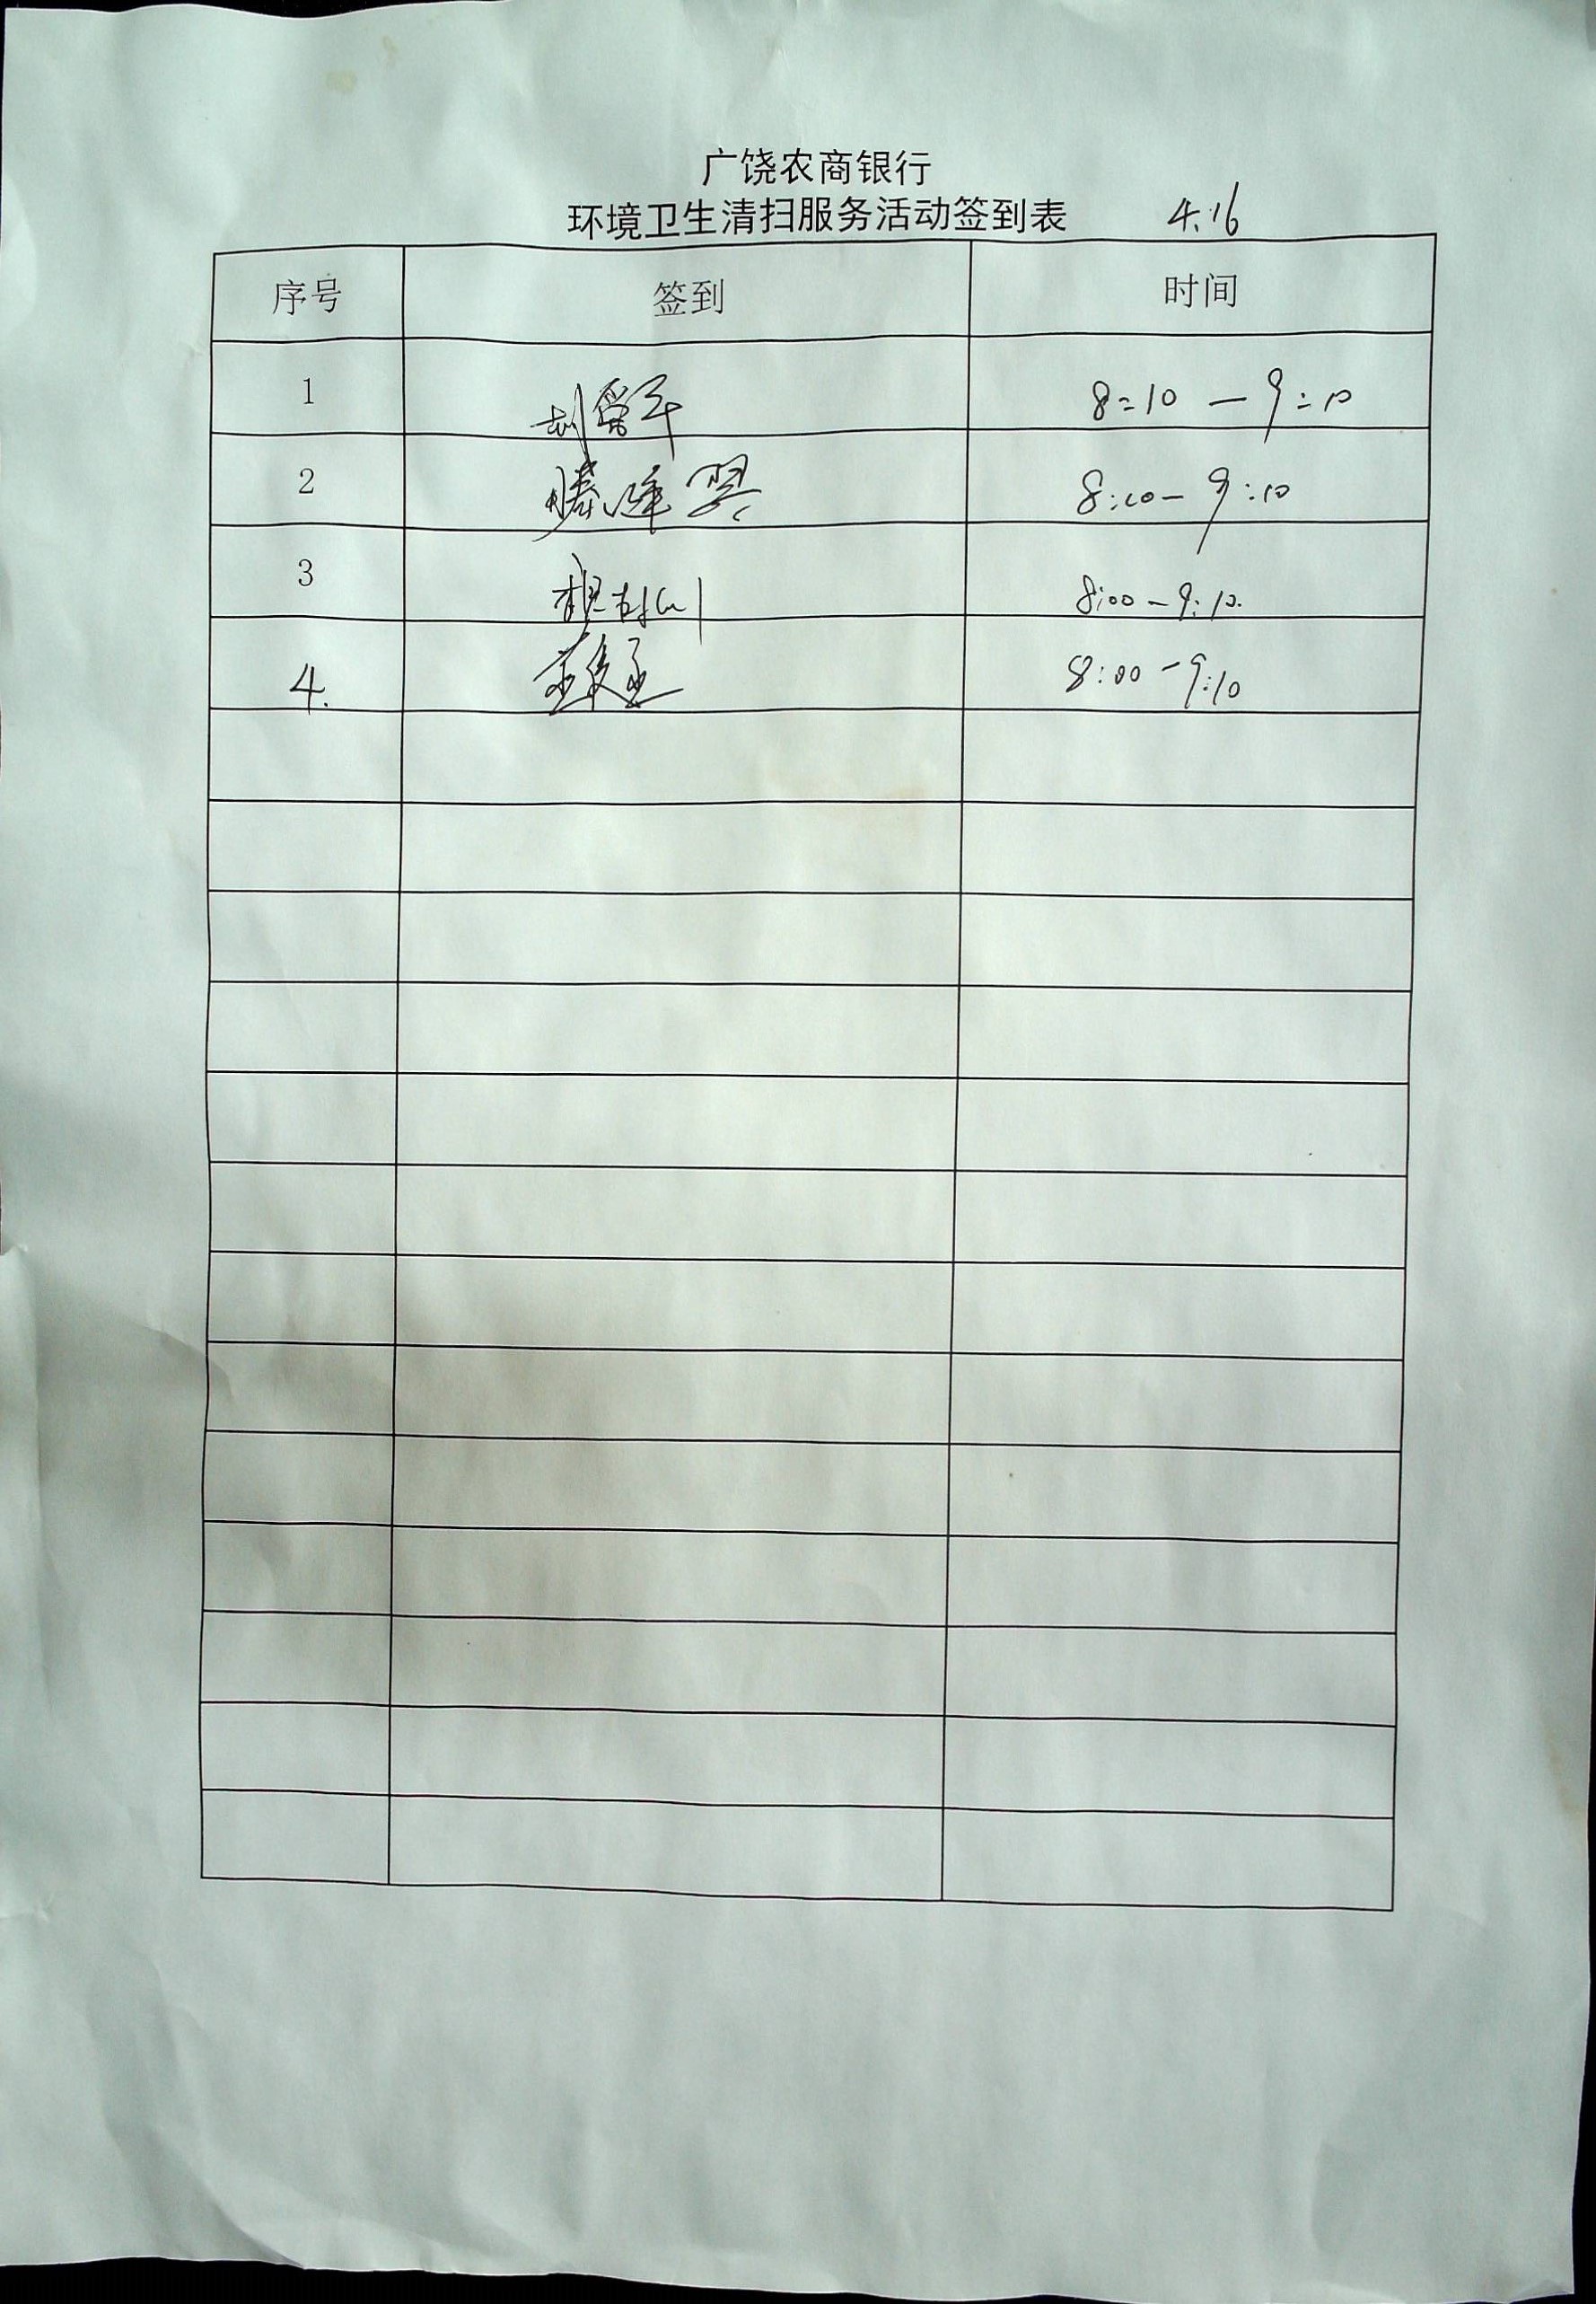 广饶农商银行
环境卫生清扫服务活动签到表 4.16
序号 签到 时间
1 8:10 — 9:10
2 8:00 - 9:10
3 8:00 - 9:10.
4. 8:00 - 9:10